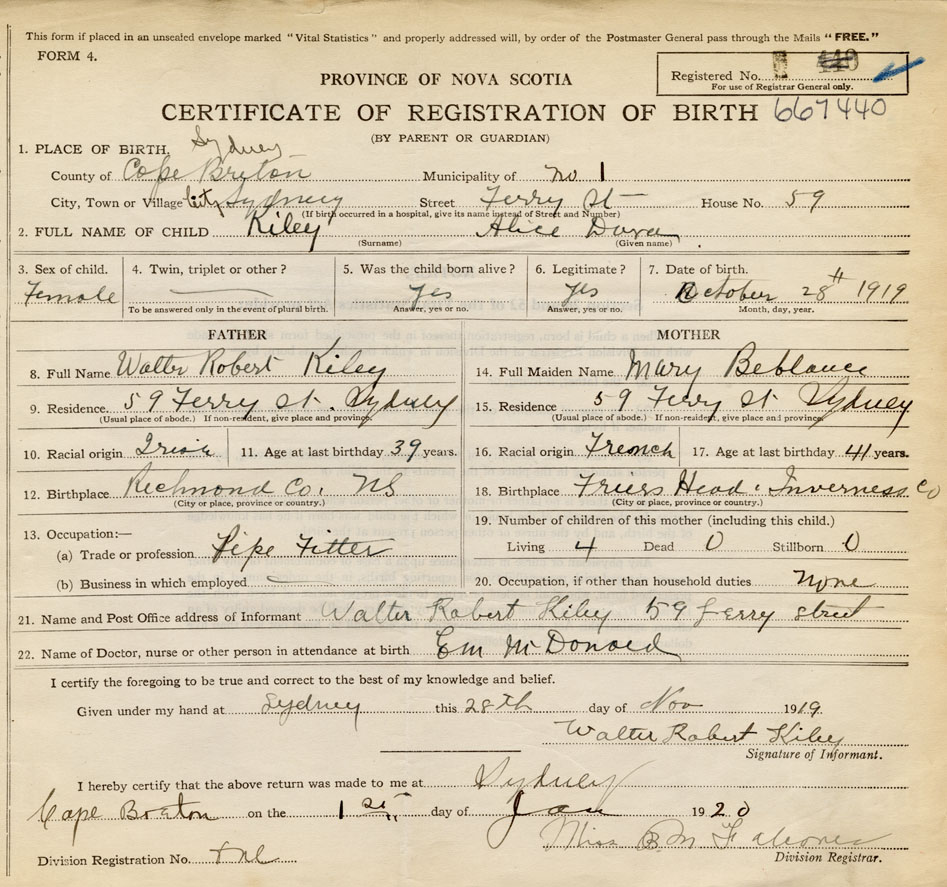 This form if placed in an unsealed envelope marked "Vital Statistics" and properly addressed will, by order of the Postmaster General pass through the Mails "FREE."
FORM 4.
Registered No.
For use of Registrar General only.
PROVINCE OF NOVA SCOTIA
CERTIFICATE OF REGISTRATION OF BIRTH 667440
(BY PARENT OR GUARDIAN)
1. PLACE OF BIRTH, Sydney
County of Cope Breton Municipality of No 1
City, Town or Village City Sydney Street Ferry St House No. 59
(If birth occurred in a hospital, give its name instead of Street and Number)
2. FULL NAME OF CHILD Kiley Alice Dora
(Surname) (Given name)
3. Sex of child. 4. Twin, triplet or other? 5. Was the child born alive? 6. Legitimate? 7. Date of birth.
Female Yes Yes October 28th 1919
To be answered only in the event of plural birth. Answer, yes or no. Answer, yes or no. Month, day, year.
FATHER MOTHER
8. Full Name Walter Robert Kiley 14. Full Maiden Name Mary Beblance
9. Residence 59 Ferry St. Sydney 15. Residence 59 Ferry St Sydney
(Usual place of abode.) If non-resident, give place and province. (Usual place of abode.) If non-resident, give place and province.
10. Racial origin Irish 11. Age at last birthday 39 years. 16. Racial origin French 17. Age at last birthday 41 years.
12. Birthplace Richmond Co. NS 18. Birthplace Friers Head. Inverness Co
(City or place, province or country.) (City or place, province or country.)
13. Occupation:— 19. Number of children of this mother (including this child.)
(a) Trade or profession Pipe Fitter Living 4 Dead 0 Stillborn 0
(b) Business in which employed 20. Occupation, if other than household duties None
21. Name and Post Office address of Informant Walter Robert Kiley 59 Ferry street
22. Name of Doctor, nurse or other person in attendance at birth Em McDonald
I certify the foregoing to be true and correct to the best of my knowledge and belief.
Given under my hand at Sydney this 28th day of Nov 1919.
Walter Robert Kiley
Signature of Informant.
I hereby certify that the above return was made to me at Sydney
Cape Breton on the 1st day of Jan 1920
Miss B. M.
Division Registration No. Division Registrar.